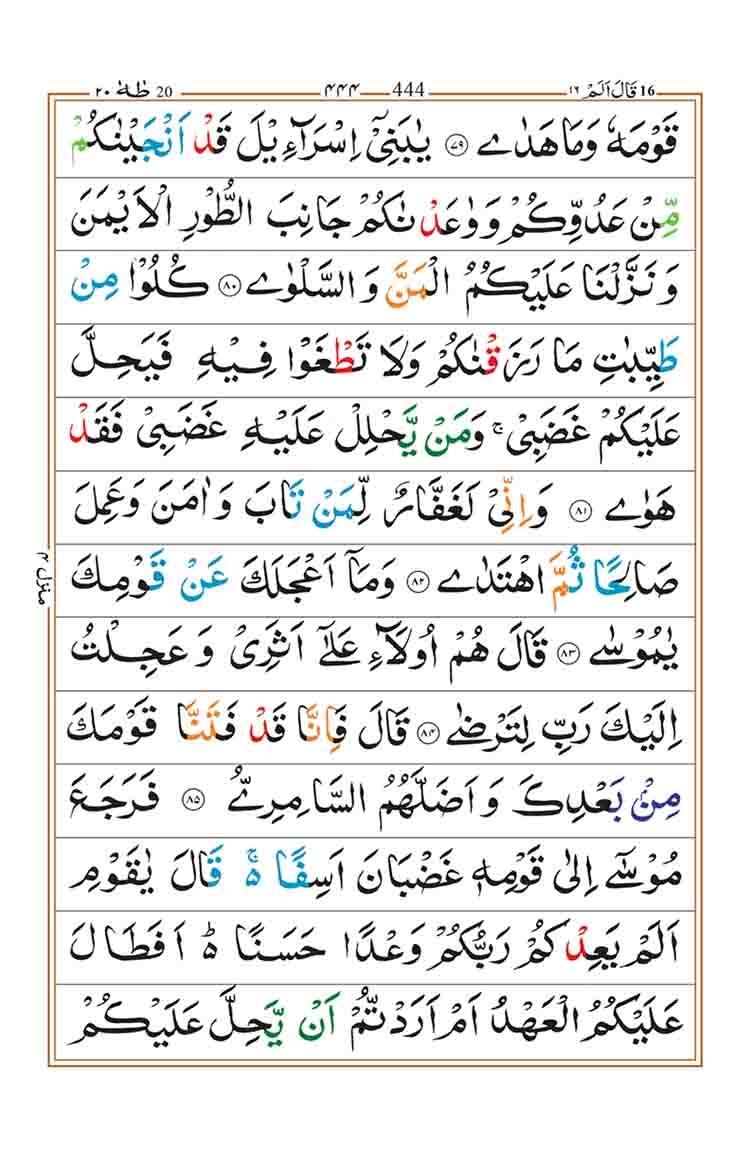 16 قَالَ اَلَمْ ١٦ 444 ۴۴۴ 20 طٰهٰ ٢٠
قَوْمَهٗ وَمَا هَدٰے ﴿۷۹﴾ یٰبَنِیْۤ اِسْرَآءِیْلَ قَدْ اَنْجَیْنٰكُمْ
مِّنْ عَدُوِّكُمْ وَوٰعَدْنٰكُمْ جَانِبَ الطُّوْرِ الْاَیْمَنَ
وَنَزَّلْنَا عَلَیْكُمُ الْمَنَّ وَالسَّلْوٰے ﴿۸۰﴾ كُلُوْا مِنْ
طَیِّبٰتِ مَا رَزَقْنٰكُمْ وَلَا تَطْغَوْا فِیْهِ فَیَحِلَّ
عَلَیْكُمْ غَضَبِیْ ۚ وَمَنْ یَّحْلِلْ عَلَیْهِ غَضَبِیْ فَقَدْ
هَوٰے ﴿۸۱﴾ وَاِنِّیْ لَغَفَّارٌ لِّمَنْ تَابَ وَاٰمَنَ وَعَمِلَ
صَالِحًا ثُمَّ اهْتَدٰے ﴿۸۲﴾ وَمَاۤ اَعْجَلَكَ عَنْ قَوْمِكَ
یٰمُوْسٰے ﴿۸۳﴾ قَالَ هُمْ اُولَآءِ عَلٰۤے اَثَرِیْ وَعَجِلْتُ
اِلَیْكَ رَبِّ لِتَرْضٰے ﴿۸۴﴾ قَالَ فَاِنَّا قَدْ فَتَنَّا قَوْمَكَ
مِنْۢ بَعْدِكَ وَاَضَلَّهُمُ السَّامِرِیُّ ﴿۸۵﴾ فَرَجَعَ
مُوْسٰۤے اِلٰی قَوْمِهٖ غَضْبَانَ اَسِفًا ەۚ قَالَ یٰقَوْمِ
اَلَمْ یَعِدْكُمْ رَبُّكُمْ وَعْدًا حَسَنًا ەؕ اَفَطَالَ
عَلَیْكُمُ الْعَهْدُ اَمْ اَرَدْتُّمْ اَنْ یَّحِلَّ عَلَیْكُمْ
منزل ۴